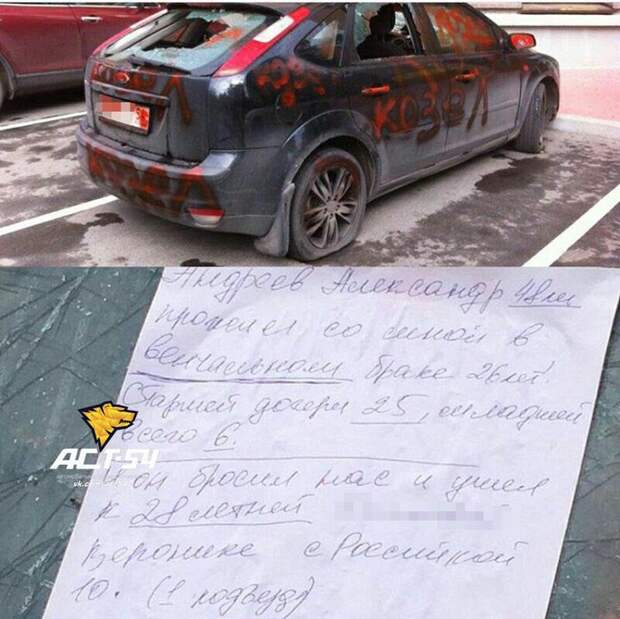 КОЗЕЛ
КОЗЕЛ
КОЗЕЛ
Андреев Александр 48 лет
прожил со мной в
венчальном браке 26 лет.
Старшей дочери 25, младшей
всего 6.
И он бросил нас и ушел
к 28 летней
Веронике с Российской
10. (1 подъезд)
АСТ-54